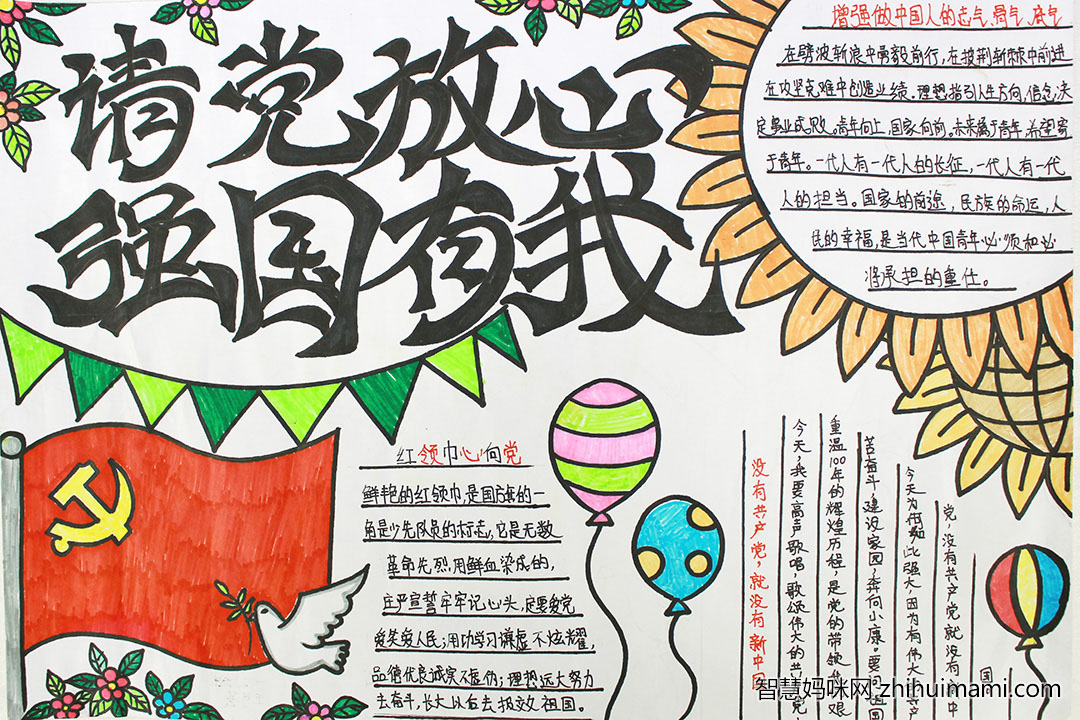 请党放心
强国有我
增强做中国人的志气、骨气、底气
在劈波斩浪中勇毅前行,在披荆斩棘中前进
在攻坚克难中创造业绩。理想指引人生方向,信念决
定事业成败。青年向上,国家向前。未来属于青年,希望寄
于青年。一代人有一代人的长征,一代人有一代
人的担当。国家的前途,民族的命运,人
民的幸福,是当代中国青年必须和必
将承担的重任。
红领巾心向党
鲜艳的红领巾,是国旗的一
角是少先队员的标志,它是无数
革命先烈,用鲜血染成的,
庄严宣誓牢牢记心头,定要爱党
爱笑爱人民;用功学习谦虚不炫耀,
品德优良诚实不虚伪;理想远大努力
去奋斗,长大以后去报效祖国。
没有共产党,就没有新中国
今天,我要高声歌唱,歌颂伟大的共产党,
重温100年的辉煌历程,是党的带领
艰
苦奋斗,建设家园,奔向小康。要问
国
今天为何如此强大,因为有伟大
共产
党,没有共产党就没有
中
国
智慧妈咪网 zhihuimami.com